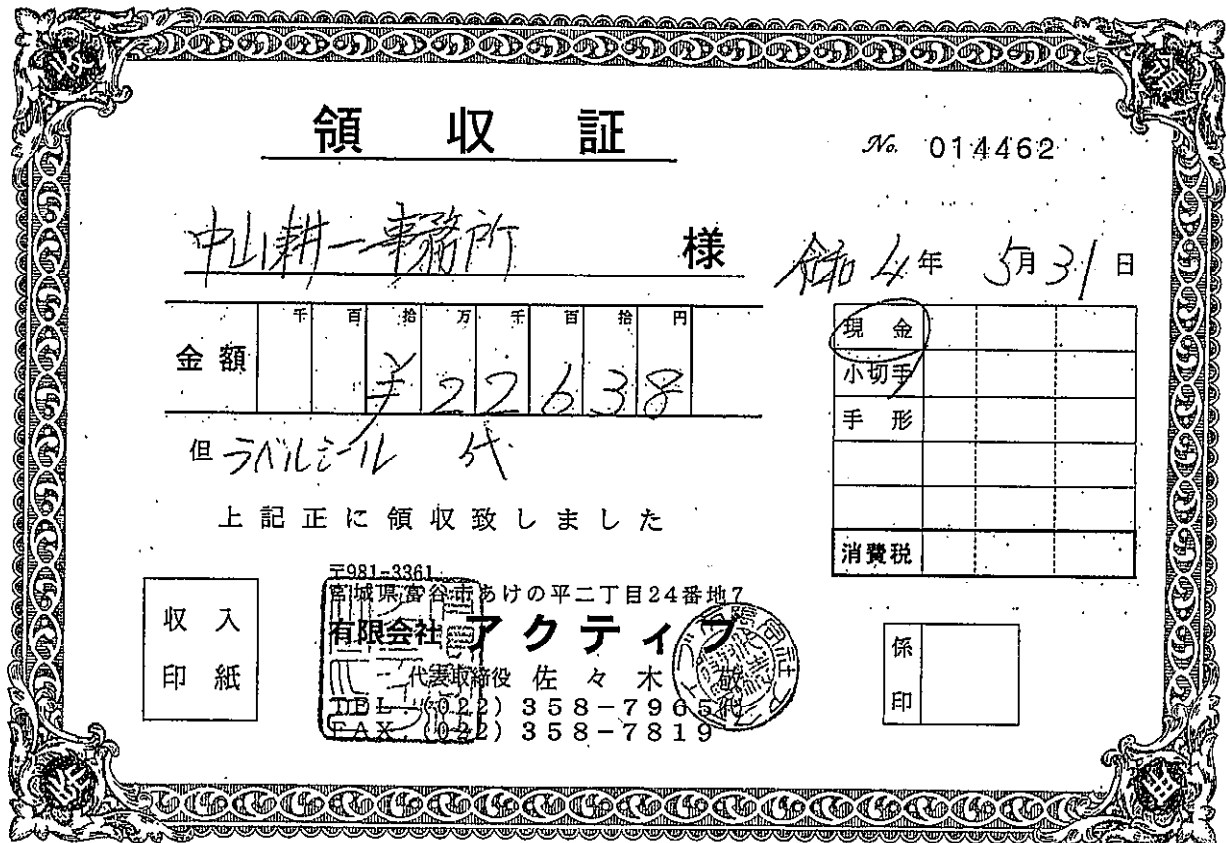 領収証
No. 014462
中山耕一事務所 様
令和4年 5月31日
千 百 拾 万 千 百 拾 円
金額 ¥22638
現金
小切手
手形
消費税
但 ラベルシール 代
上記正に領収致しました
収入
印紙
〒981-3361
宮城県富谷市あけの平二丁目24番地7
有限会社 アクティブ
代表取締役 佐々木 敬
TEL (022) 358-7965代
FAX (022) 358-7819
係
印